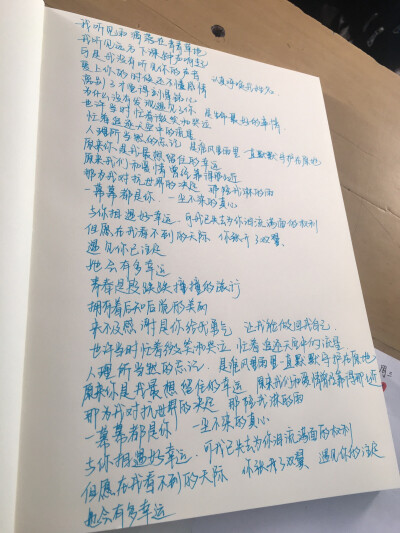 我听见雨滴落在青青草地
我听见远方下课钟声响起
可是我没有听见你的声音 认真呼唤我姓名
爱上你的时候还不懂感情
离别了才觉得刻骨铭心
为什么没有发现遇见了你 是生命最好的事情
也许当时忙着微笑和哭泣
忙着追逐天空中的流星
人理所当然的忘记 是谁风里雨里一直默默守护在原地
原来你是我最想留住的幸运
原来我们和爱情曾经靠得那近
那为我对抗世界的决定 那陪我淋的雨
一幕幕都是你 一尘不染的真心
与你相遇好幸运 可我已失去为你泪流满面的权利
但愿在我看不到的天际 你张开了双翼
遇见你已注定
她会有多幸运
青春是段跌跌撞撞的旅行
拥有着后知后觉的美丽
来不及感谢是你给我勇气 让我能做回我自己
也许当时忙着微笑和哭泣 忙着追逐天空中的流星
人理所当然的忘记 是谁风里雨里一直默默守护在原地
原来你是我最想留住的幸运 原来我们和爱情曾经靠得那近
那为我对抗世界的决定 那陪我淋的雨
一幕幕都是你 一尘不染的真心
与你相遇好幸运 可我已失去为你泪流满面的权利
但愿在我看不到的天际 你张开了双翼 遇见你的注定
她会有多幸运